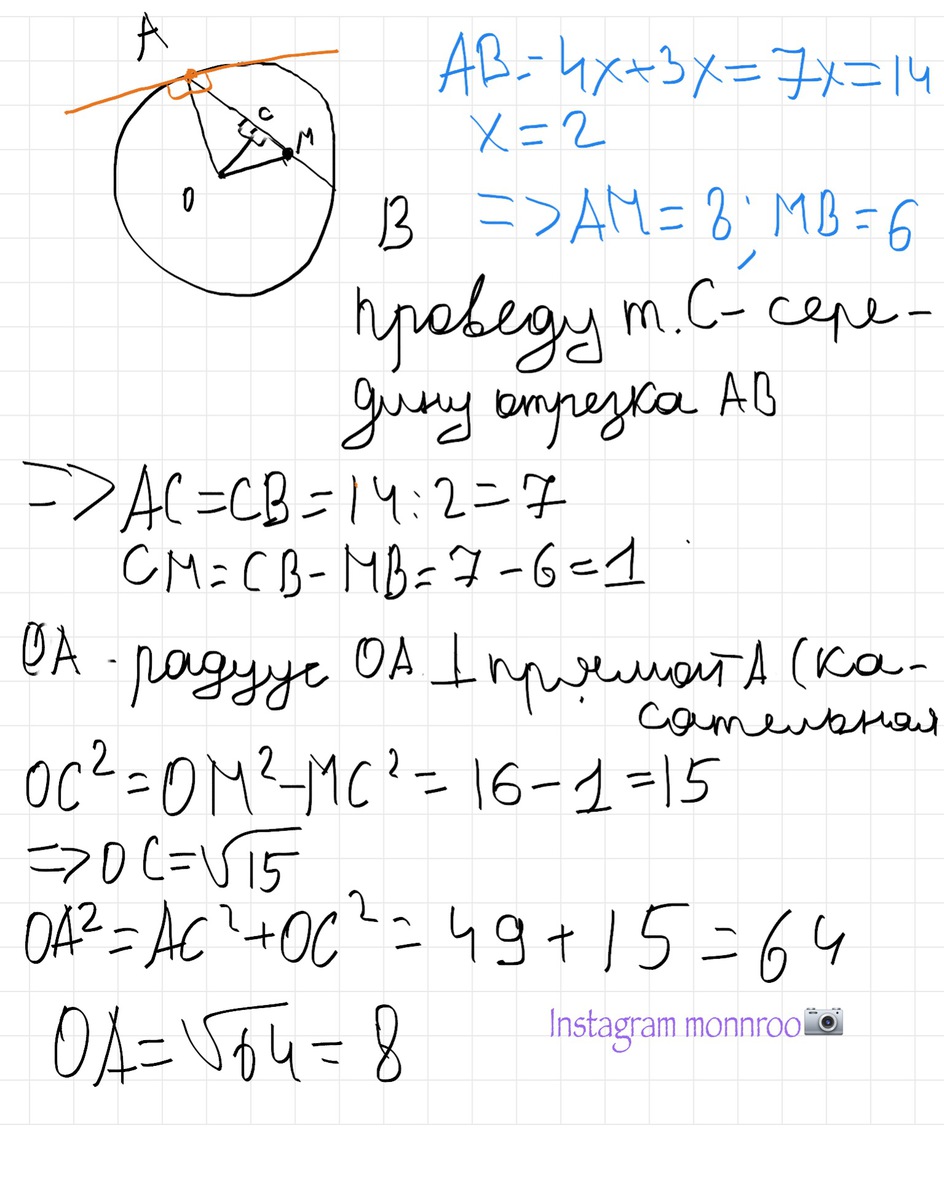 A
C
M
O
B
AB = 4x+3x = 7x = 14
x = 2
=> AM = 8; MB = 6
проведу т. C - сере-
дину отрезка AB
=> AC = CB = 14 : 2 = 7
CM = CB - MB = 7 - 6 = 1
OA - радуус OA ⊥ прямой A (ка-
сательная
OC² = OM² - MC² = 16 - 1 = 15
=> OC = √15
OA² = AC² + OC² = 49 + 15 = 64
OA = √64 = 8
Instagram monnroo